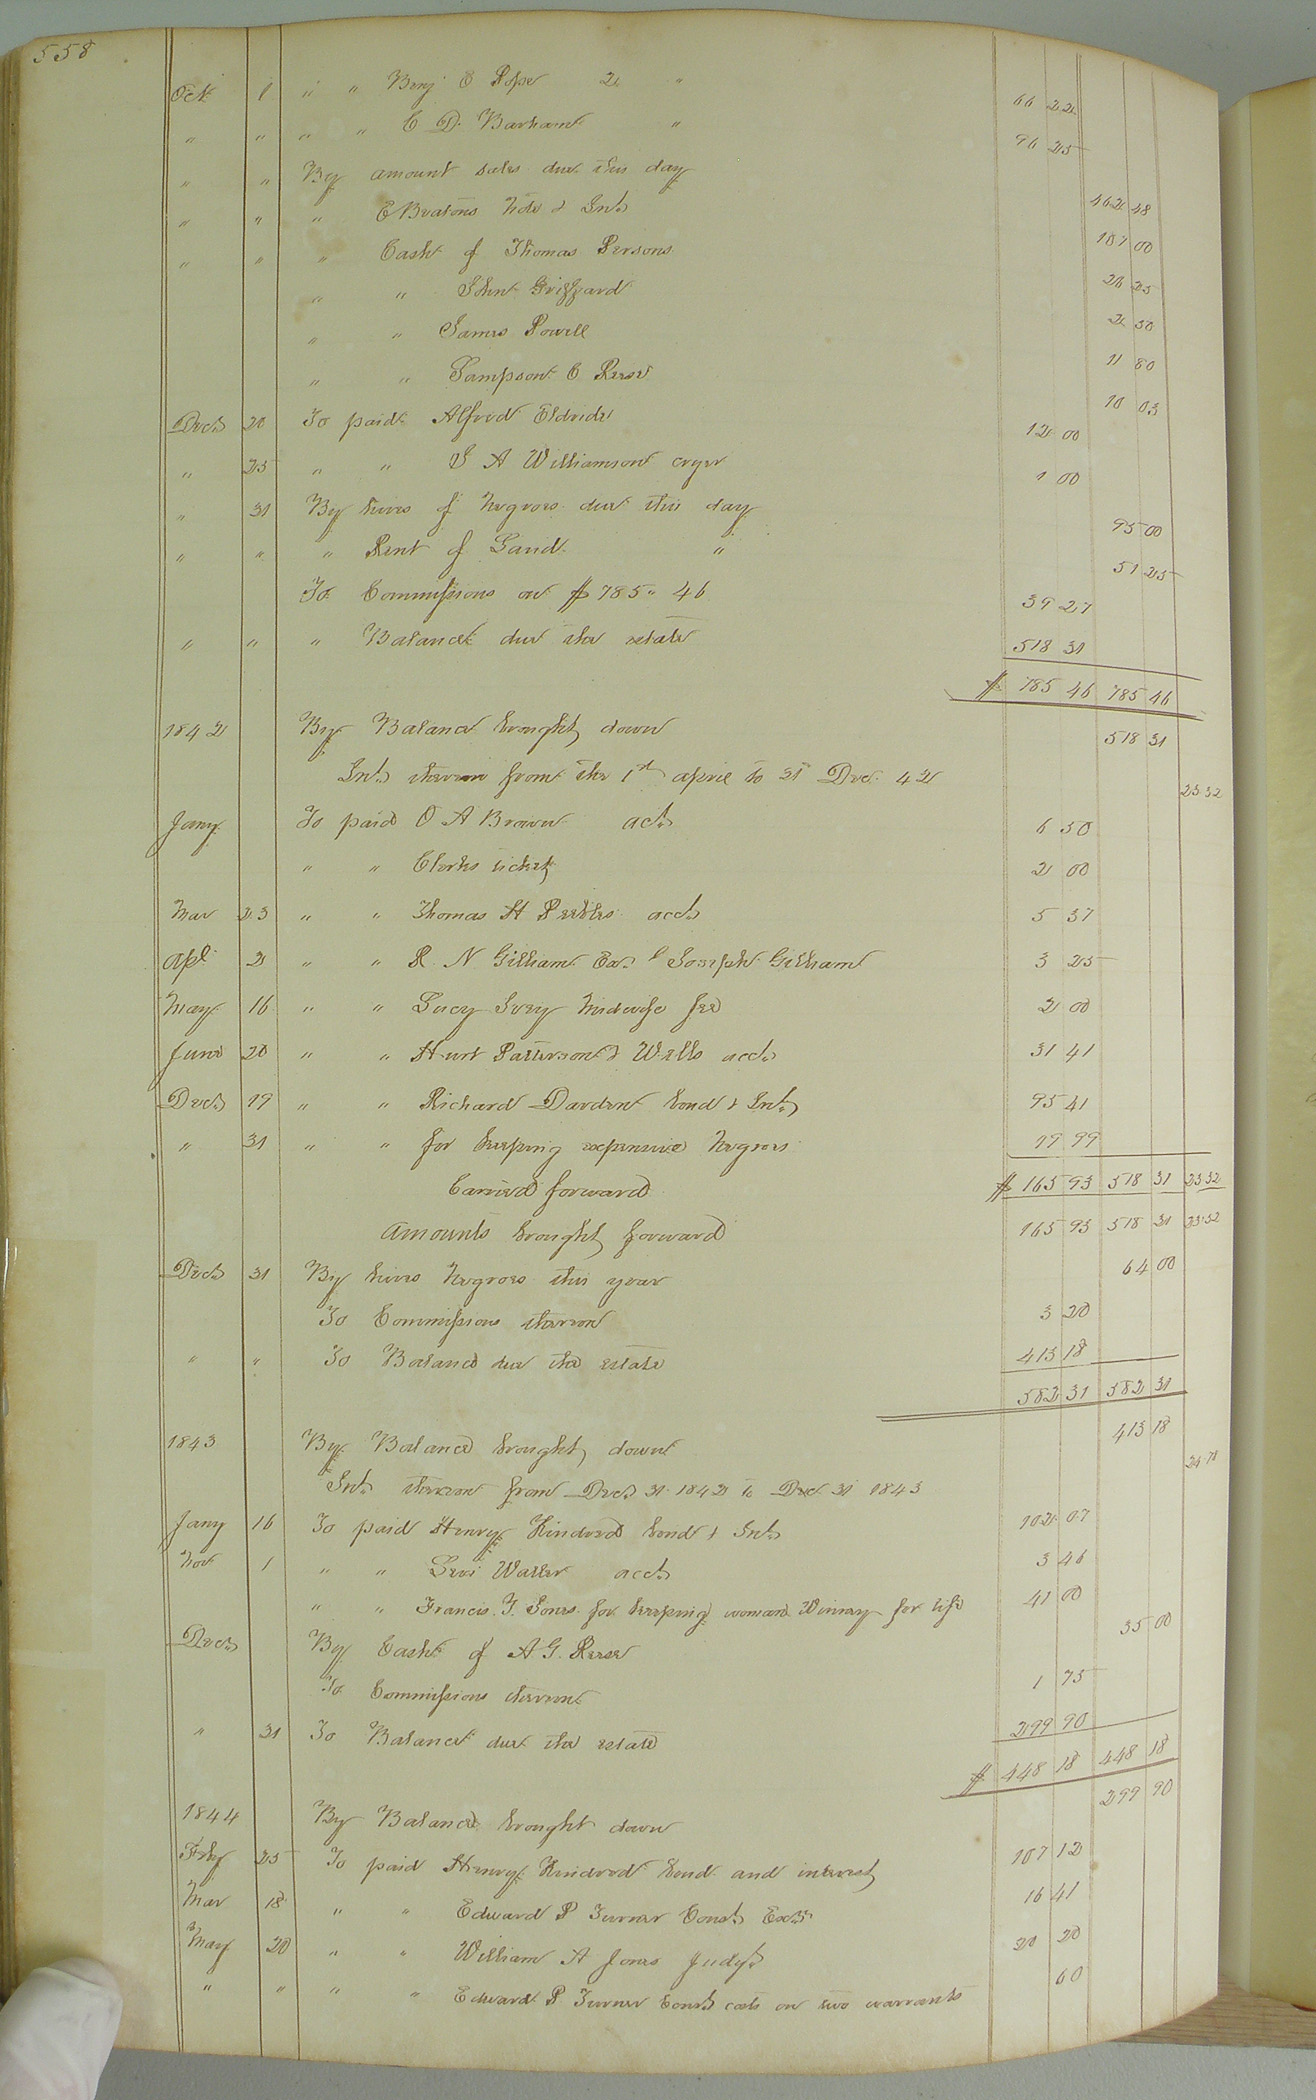 558
Oct 1 " " Benj C Pope 2 " 66 22
" " " " C D. Barham " 96 25
" " By amount sales due this day 462 48
" " " E Beatons note & Int. 107 00
" " " Cash of Thomas Persons 26 25
" " John Grizzard 2 50
" " James Powell 11 80
" " Sampson C Reese 10 03
Decr 20 To paid Alfred Eldride 12 00
" 25 " " J A Williamson cryer 1 00
" 31 By hires of Negroes due this day 95 00
" " " Rent of Land " 51 25
To Commissions on $785" 46 39 27
" " " Balance due the estate 518 31
$ 785 46 785 46
1842 By Balance brought down 518 31
Int. thereon from the 1st april to 31 Dec. 42 23 32
Jany To paid O A Brown act. 6 50
" " Clerks ticket 2 00
Mar 23 " " Thomas H Peebles acct. 5 37
Apl 2 " " R. N Gilliam Exr. Joseph Gilliam 3 25
May 16 " " Lucy Ivey Midwife fee 2 00
June 20 " " Hurt Patterson & Wells acct. 31 41
Decr 19 " " Richard Darden bond & Int. 95 41
" 31 " " for keeping expensive Negroes 19 99
Carried forward $ 165 93 518 31 23 32
Amounts brought forward 165 93 518 31 23 32
Decr 31 By hires Negroes this year 64 00
To Commissions thereon 3 20
" " To Balance due the estate 413 18
582 31 582 31
1843 By Balance brought down 413 18
Int. thereon from Decr 31 1842 to Dec. 31 1843 24 78
Jany 16 To paid Henry Kindred bond & Int. 102 07
Nov 1 " " Levi Waller acct. 3 46
" " Francis. T. Jones for keeping woman Winney for life 41 00
Decr By Cash of A G. Reese 35 00
To Commissions thereon 1 75
" 31 To Balance due the estate 299 90
$ 448 18 448 18
1844 By Balance brought down 299 90
Feby 25 To paid Henry Kindred bond and interest 107 12
Mar 18 " " Edward P Turner Const. 16 41
May 20 " " William A Jones Judgt 20 20
" " " " Edward P Turner Const. costs on two warrants 60